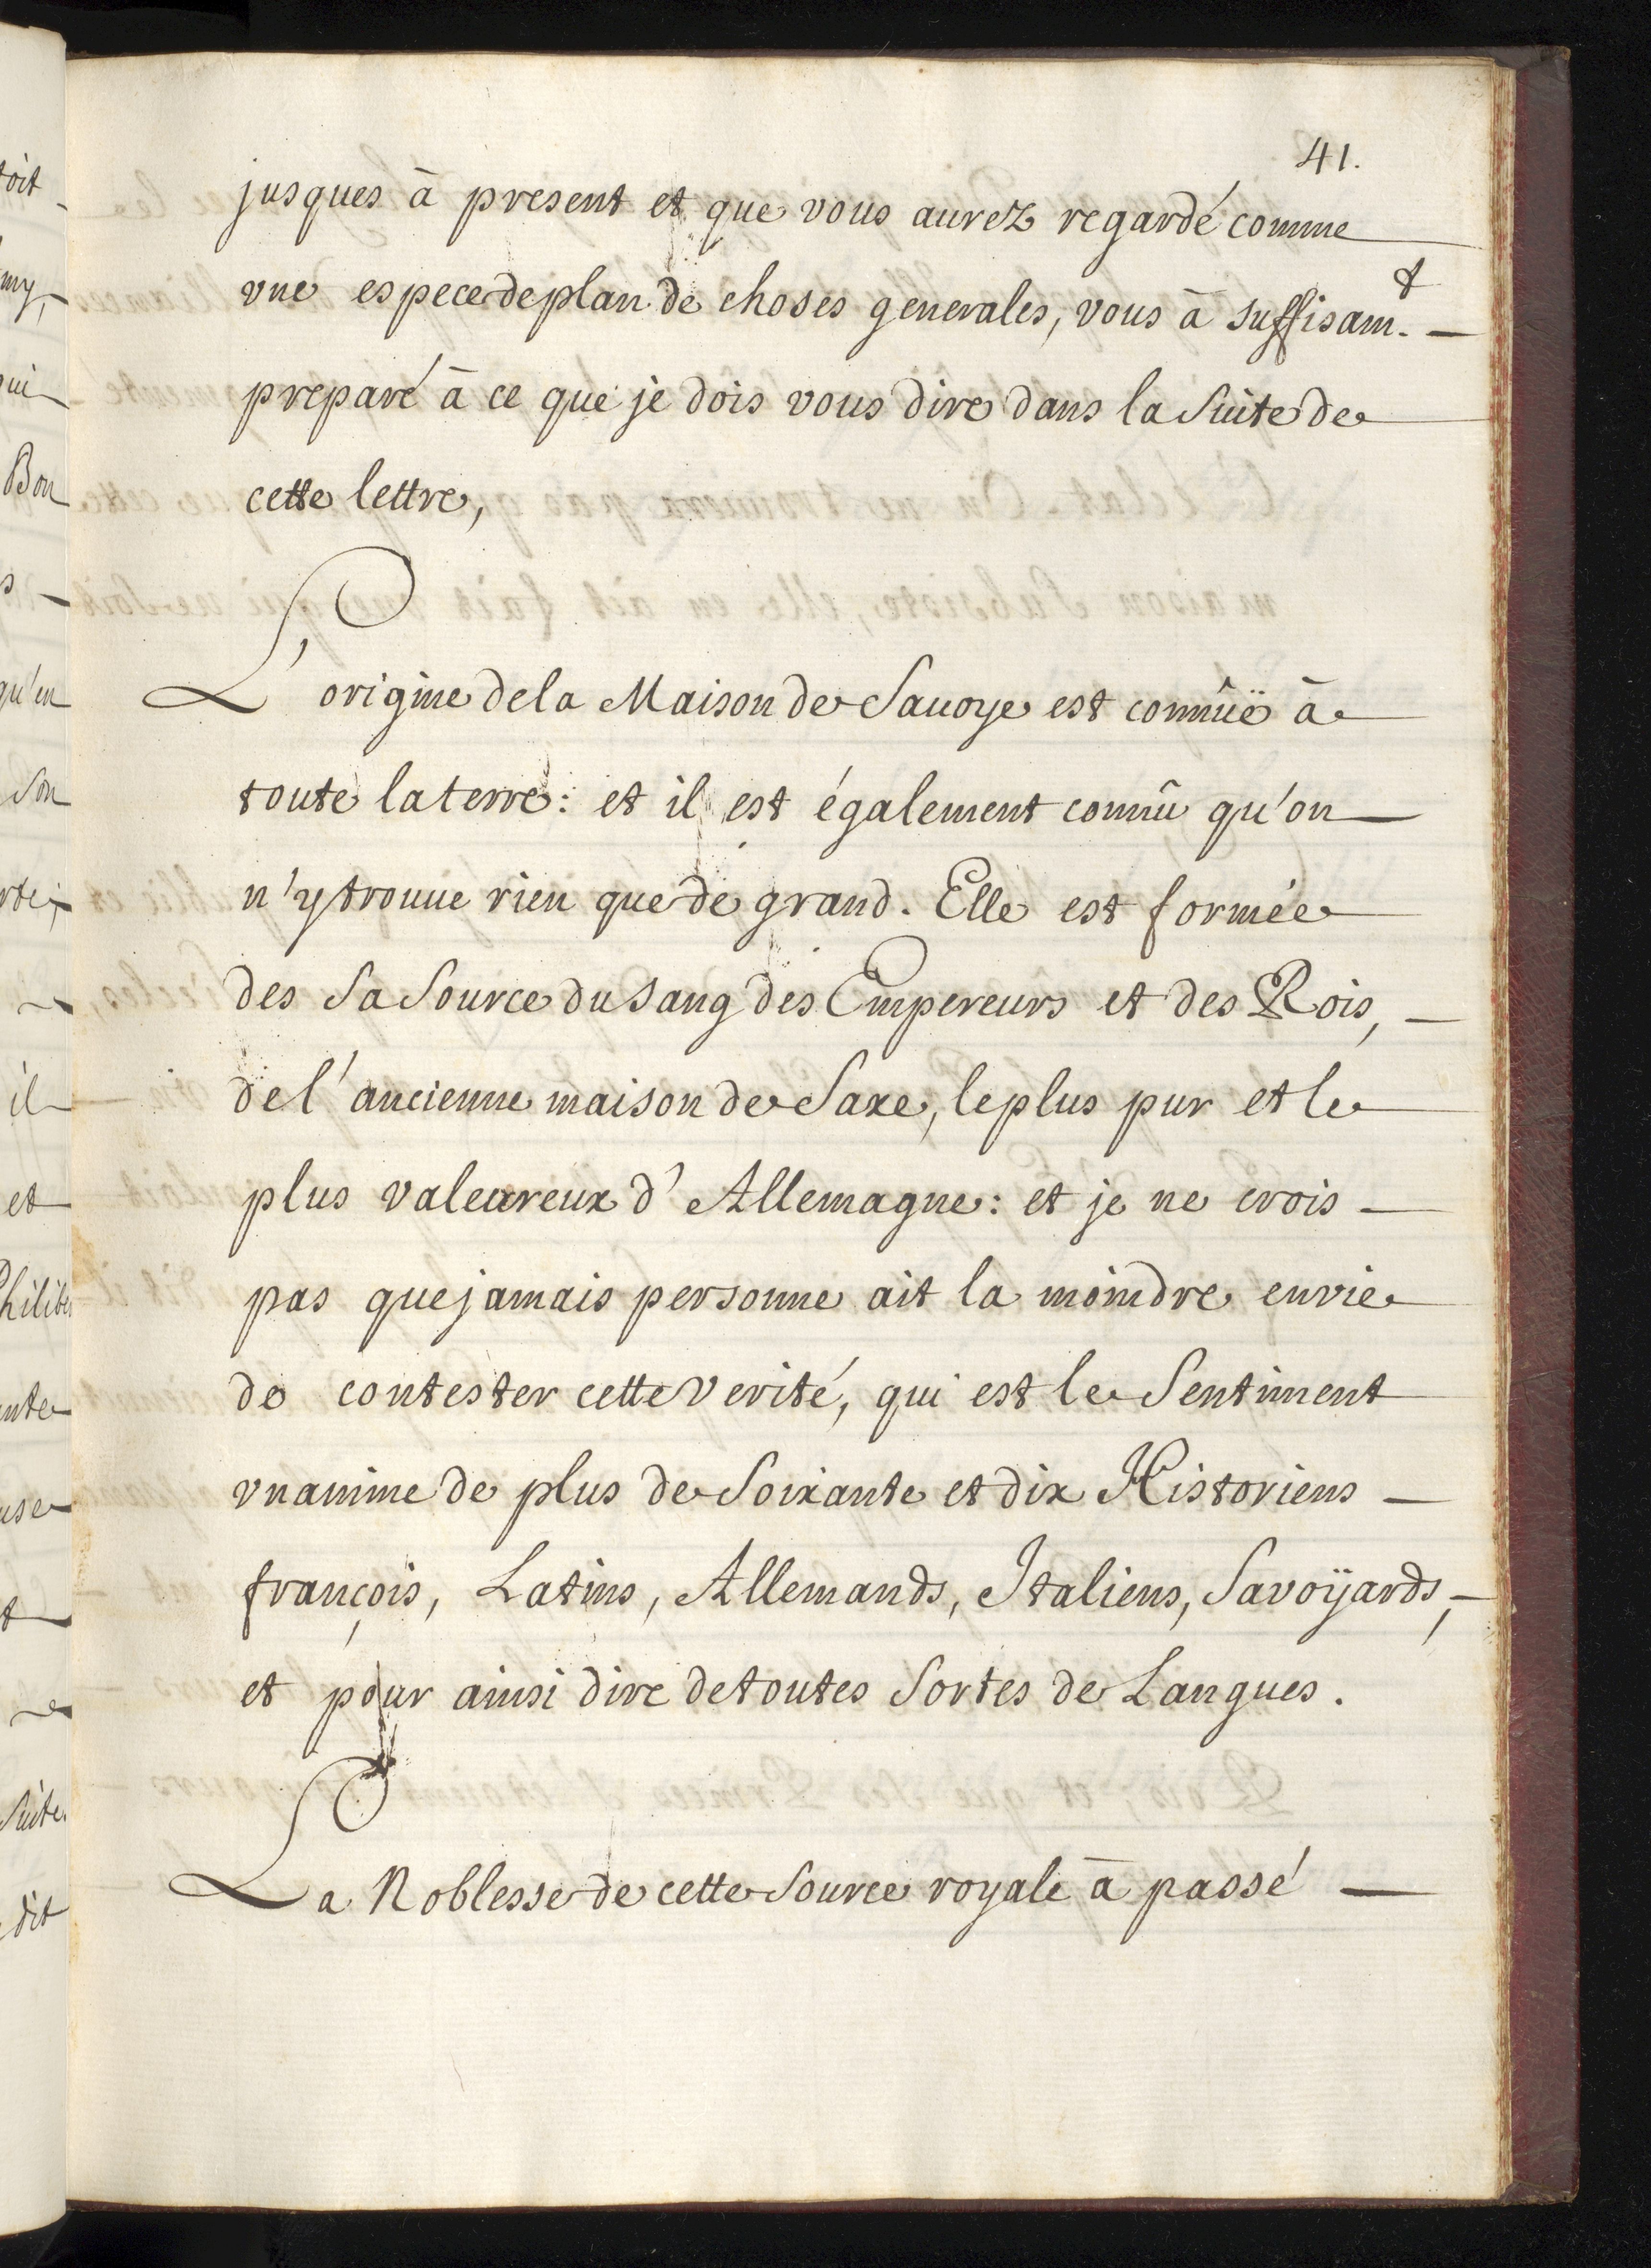 41.
jusques à present et que vous aurez regardé comme
vne espece de plan de choses generales, vous à suffisam.t
preparé à ce que je dois vous dire dans la Suite de
cette lettre,
L'origine de la Maison de Sauoye est connûë à
toute la terre: et il est également connû qu'on
n'y trouue rien que de grand. Elle est formée
des Sa Source du Sang des Empereurs et des Rois,
de l'ancienne maison de Saxe, le plus pur et le
plus valeureux d'Allemagne: et je ne crois
pas que jamais personne ait la moindre envie
de contester cette Verité, qui est le Sentiment
vnanime de plus de Soixante et dix Historiens
françois, Latins, Allemands, Italiens, Savoÿards,
et pour ainsi dire de toutes Sortes de Langues.
La Noblesse de cette Source royale à passé